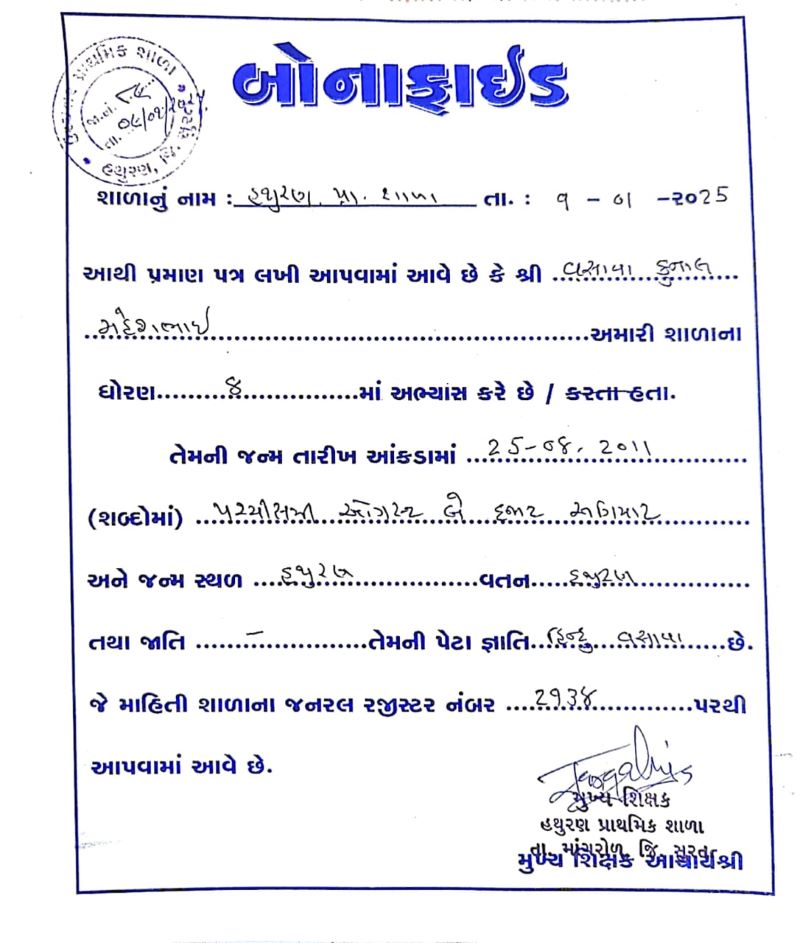 બોનાફાઈડ
પ્રાથમિક શાળા
જા.નં.
તા.
હથુરણ, જિ. સુરત
શાળાનું નામ : હથુરણ પ્રા. શાળા તા. : ૧ - ૦૧ -૨૦25
આથી પ્રમાણ પત્ર લખી આપવામાં આવે છે કે શ્રી વસાવા કુનાલ
મહેશભાઈ અમારી શાળાના
ધોરણ ૪ માં અભ્યાસ કરે છે / કરતા હતા.
તેમની જન્મ તારીખ આંકડામાં 25-08. 2011
(શબ્દોમાં) પચ્ચીસમી ઓગસ્ટ બે હજાર અગિયાર
અને જન્મ સ્થળ હથુરણ વતન હથુરણ
તથા જાતિ – તેમની પેટા જ્ઞાતિ હિન્દુ વસાવા છે.
જે માહિતી શાળાના જનરલ રજીસ્ટર નંબર 2૧3૪ પરથી
આપવામાં આવે છે.
મુખ્ય શિક્ષક
હથુરણ પ્રાથમિક શાળા
તા. માંગરોળ જિ. સુરત
મુખ્ય શિક્ષક આચાર્યશ્રી